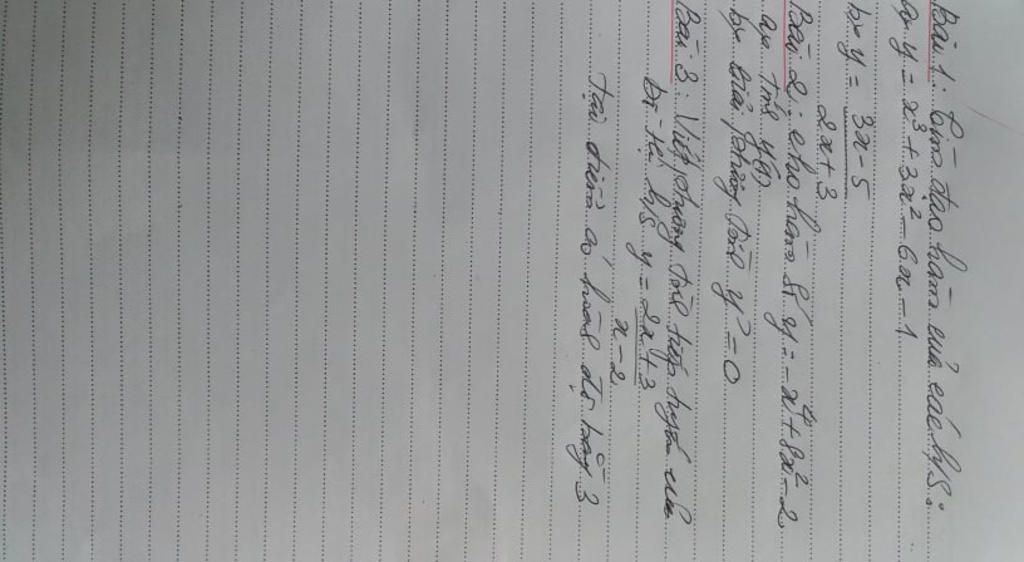 Bài 1: Tìm đạo hàm của các h/s:
a, y = x³ + 3x² - 6x - 1
b, y = 3x - 5 / 2x + 3
Bài 2: cho hàm số y = -x⁴ + 8x² - 2
a, Tính y'(1)
b, Giải phương trình y' = 0
Bài 3: Viết phương trình tiếp tuyến của
đồ thị h/s y = 2x + 3 / x - 2
Tại điểm có hoành độ bằng 3